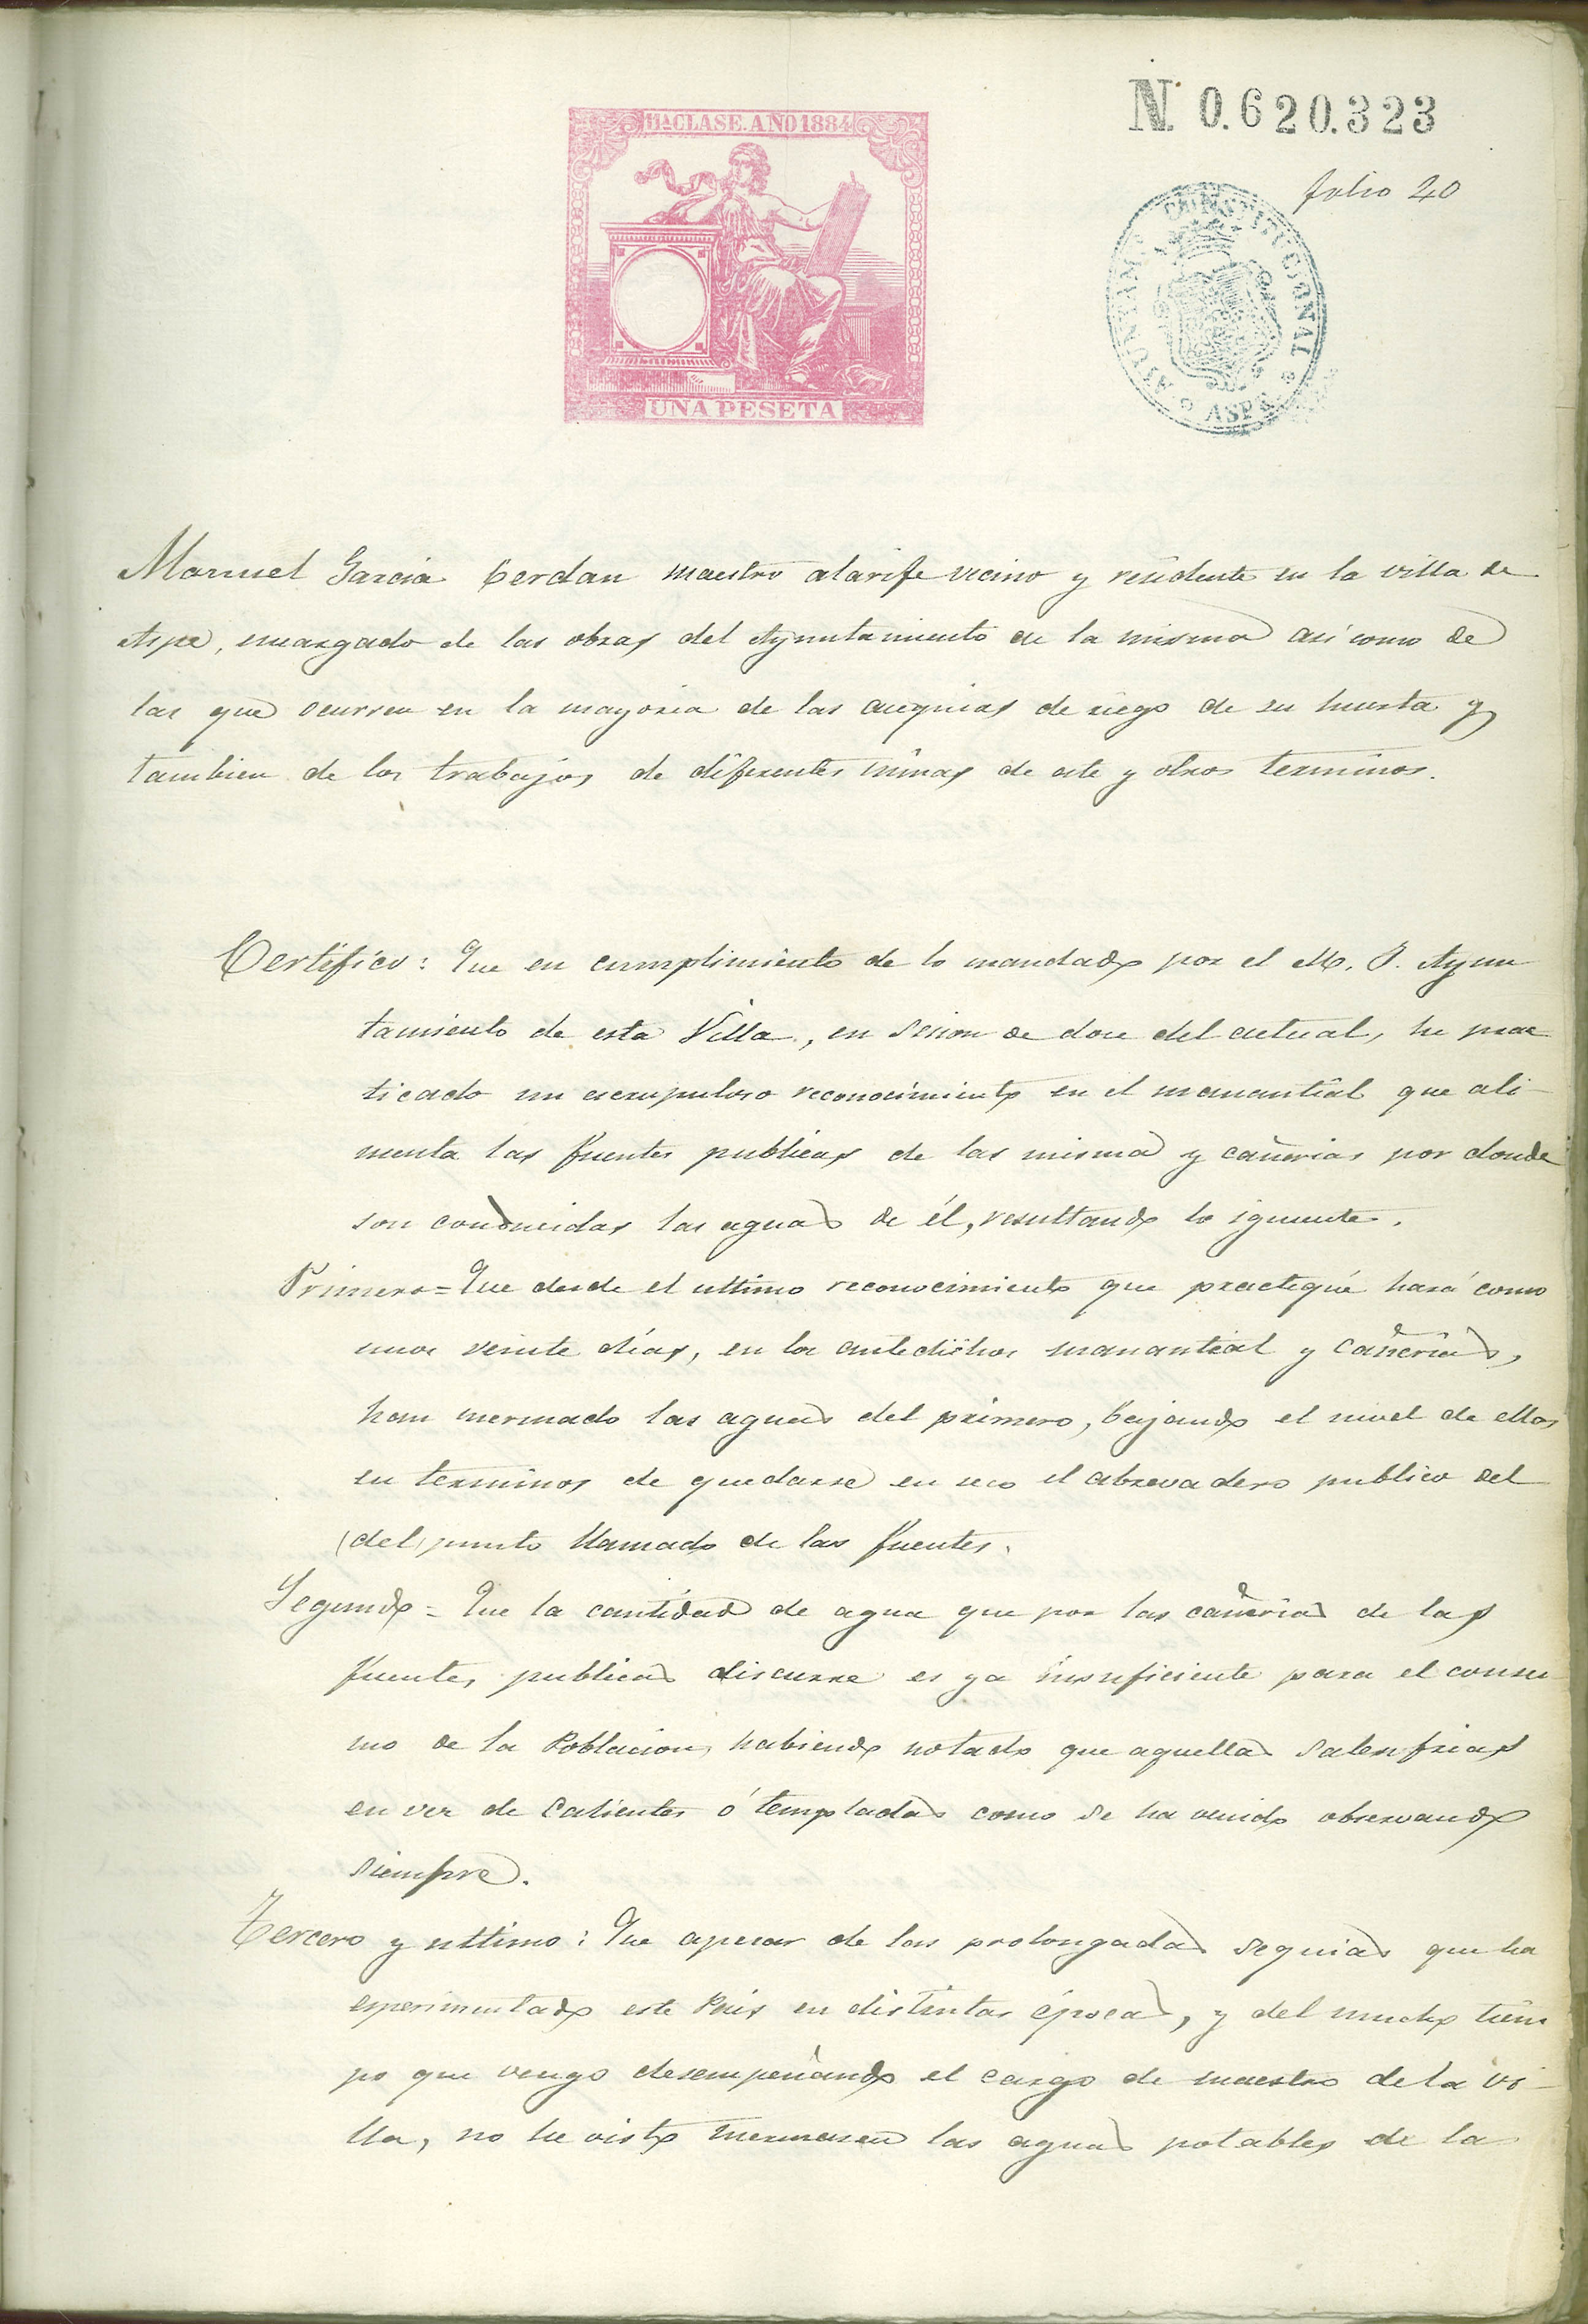 11ª CLASE. AÑO 1884
N. 0.620.323
folio 20
AYUNTAMº CONSTITUCIONAL
ASPE
UNA PESETA
Manuel Garcia Cerdan maestro alarife vecino y residente en la villa de
Aspe, encargado de las obras del Ayuntamiento de la misma asi como de
las que ocurren en la mayoria de las acequias de riego de su huerta y
tambien de los trabajos de diferentes minas de este y otros terminos.
Certifico: Que en cumplimiento de lo mandado por el M. I. Ayun
tamiento de esta Villa, en sesion de doce del actual, he prac
ticado un escrupuloso reconocimiento en el manantial que ali-
menta las fuentes publicas de las misma y cañerias por donde
son conducidas las aguas de él, resultando lo siguiente.
Primero = Que desde el ultimo reconocimiento que practiqué hará como
unos veinte días, en los antedichos manantial y cañerias,
han mermado las aguas del primero, bajando el nivel de ellas
en terminos de quedarse en seco el abrevadero publico del
(del) punto llamado de las fuentes.
Segundo = Que la cantidad de agua que por las cañerias de las
fuentes publicas discurre es ya insuficiente para el consu-
mo de la Poblacion, habiendo notado que aquellas salen frias
en vez de calientes ó templadas como se ha venido observando
siempre.
Tercero y ultimo: Que apesar de las prolongadas sequias que ha
esperimentado este Pais en distintas épocas, y del mucho tiem
po que vengo desempeñando el cargo de maestro de la vi-
lla, no he visto mermasen las aguas potables de la